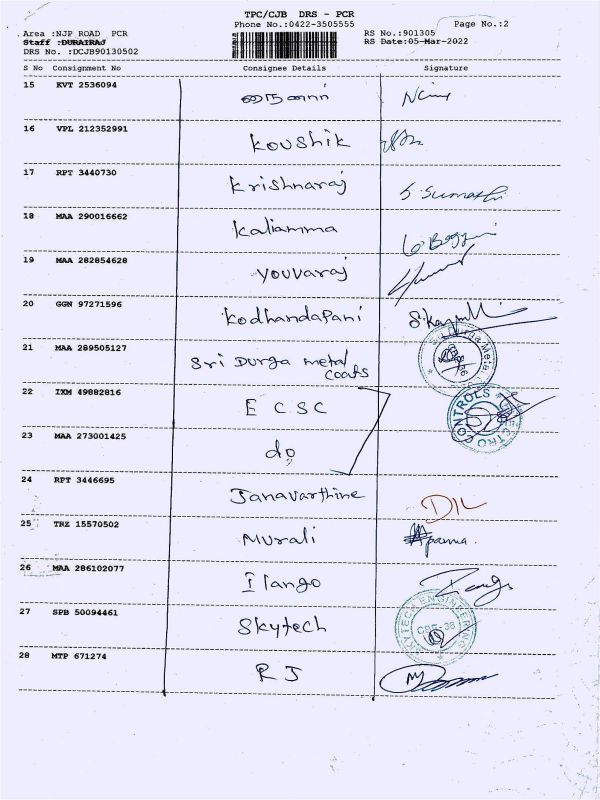 TPC/CJB DRS - PCR
Phone No.:0422-3505555
Page No.:2
Area :NJP ROAD PCR
RS No.:901305
Staff :DURAIRAJ
RS Date:05-Mar-2022
DRS No. :DCJB90130502
S No Consignment No Consignee Details Signature
15 KVT 2536094
16 VPL 212352991 Koushik
17 RPT 3440730 Krishnaraj S. Sumathi
18 MAA 290016662 Kaliamma
19 MAA 282854628 Youvaraj
20 GGN 97271596 Kodhandapani
21 MAA 289505127 Sri Durga metal
coats
22 IXM 49882816 E C S C
CONTROLS
23 MAA 273001425 do
24 RPT 3446695 Janavarthine
25 TRZ 15570502 Murali
26 MAA 286102077 Ilango
27 SPB 50094461 Skytech
SKYTECH ENGINEERING
28 MTP 671274 R J